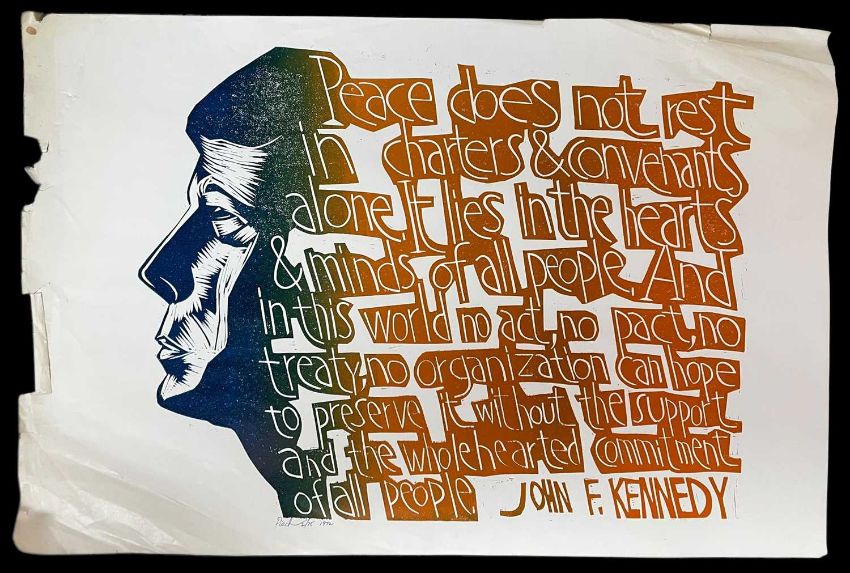 Peace does not rest
in charters & convenants
alone It lies in the hearts
& minds of all people. And
in this world no act, no pact, no
treaty, no organization can hope
to preserve it without the support
and the wholehearted commitment
of all people. JOHN F. KENNEDY
1972